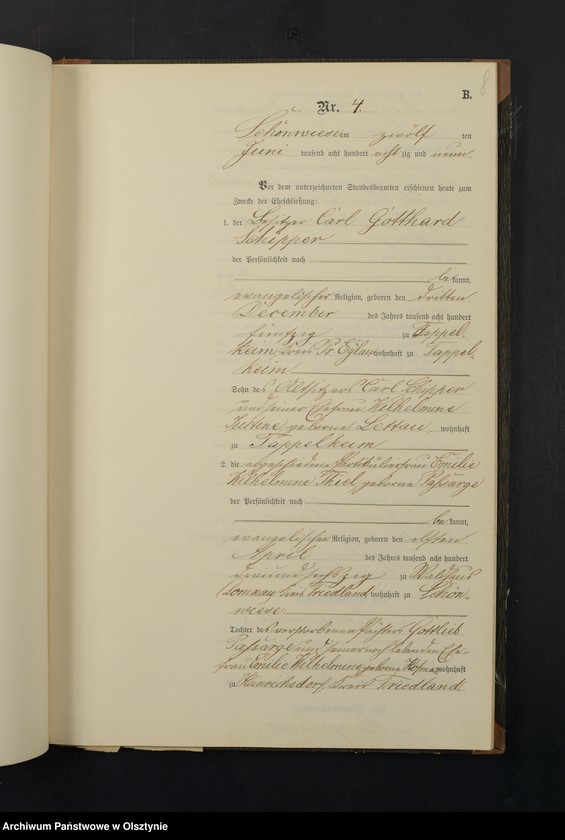 8
B.
Nr. 4.
Schönwiese am zwölf ten
Juni tausend acht hundert acht zig und neun.
Vor dem unterzeichneten Standesbeamten erschienen heute zum
Zwecke der Eheschließung:
1. der Besitzer Carl Gotthard
Schipper
der Persönlichkeit nach
be kannt,
evangelischer Religion, geboren den dritten
December des Jahres tausend acht hundert
fünfzig zu Tappel-
keim Kreis Pr. Eylau, wohnhaft zu Tappel-
keim
Sohn des Altsitzers Carl Schipper
und seiner Ehefrau Wilhelmine
Justine geborne Lettau wohnhaft
zu Tappelkeim
2. die abgeschiedene Emilie
Wilhelmine Thiel geborne Passarge
der Persönlichkeit nach
be kannt,
evangelischer Religion, geboren den elften
April des Jahres tausend acht hundert
zweiundsechszig zu Waldhaus
Romkau Kreis Friedland, wohnhaft zu Schön-
wiese
Tochter des verstorbenen Gottlieb
Passarge und seiner noch lebenden Ehe-
frau Emilie Wilhelmine geborne wohnhaft
zu Heinrichsdorf Kreis Friedland
Archiwum Państwowe w Olsztynie